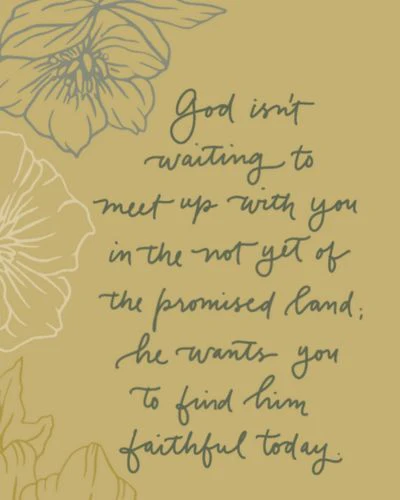 God isn't
waiting to
meet up with you
in the not yet of
the promised land;
he wants you
to find him
faithful today.